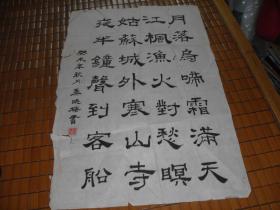 月落烏啼霜滿天
江楓漁火對愁瞑
姑蘇城外寒山寺
夜半鐘聲到客船
癸未年秋月